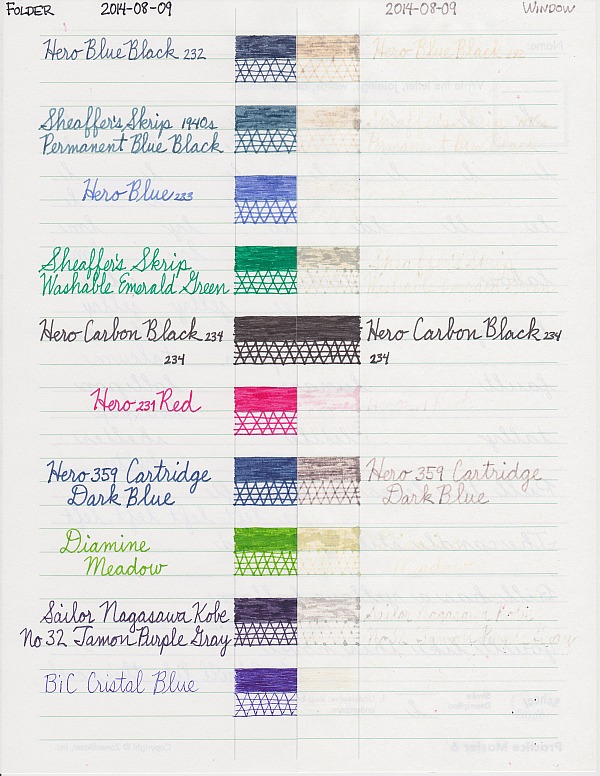 FOLDER 2014-08-09 2014-08-09 WINDOW
Hero Blue Black 232 Hero Blue Black 232
Sheaffer's Skrip 1940s
Permanent Blue Black
Hero Blue 233
Sheaffer's Skrip
Washable Emerald Green
Hero Carbon Black 234 Hero Carbon Black 234
234 234
Hero 231 Red
Hero 359 Cartridge Hero 359 Cartridge
Dark Blue Dark Blue
Diamine
Meadow
Sailor Nagasawa Kobe Sailor Nagasawa Kobe
No 32 Tamon Purple Gray
BiC Cristal Blue